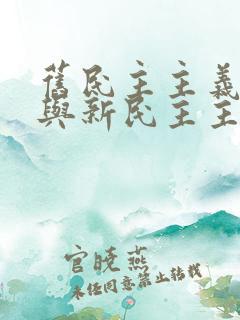 舊民主主義
與新民主主
官曉燕
未经同意禁止转载